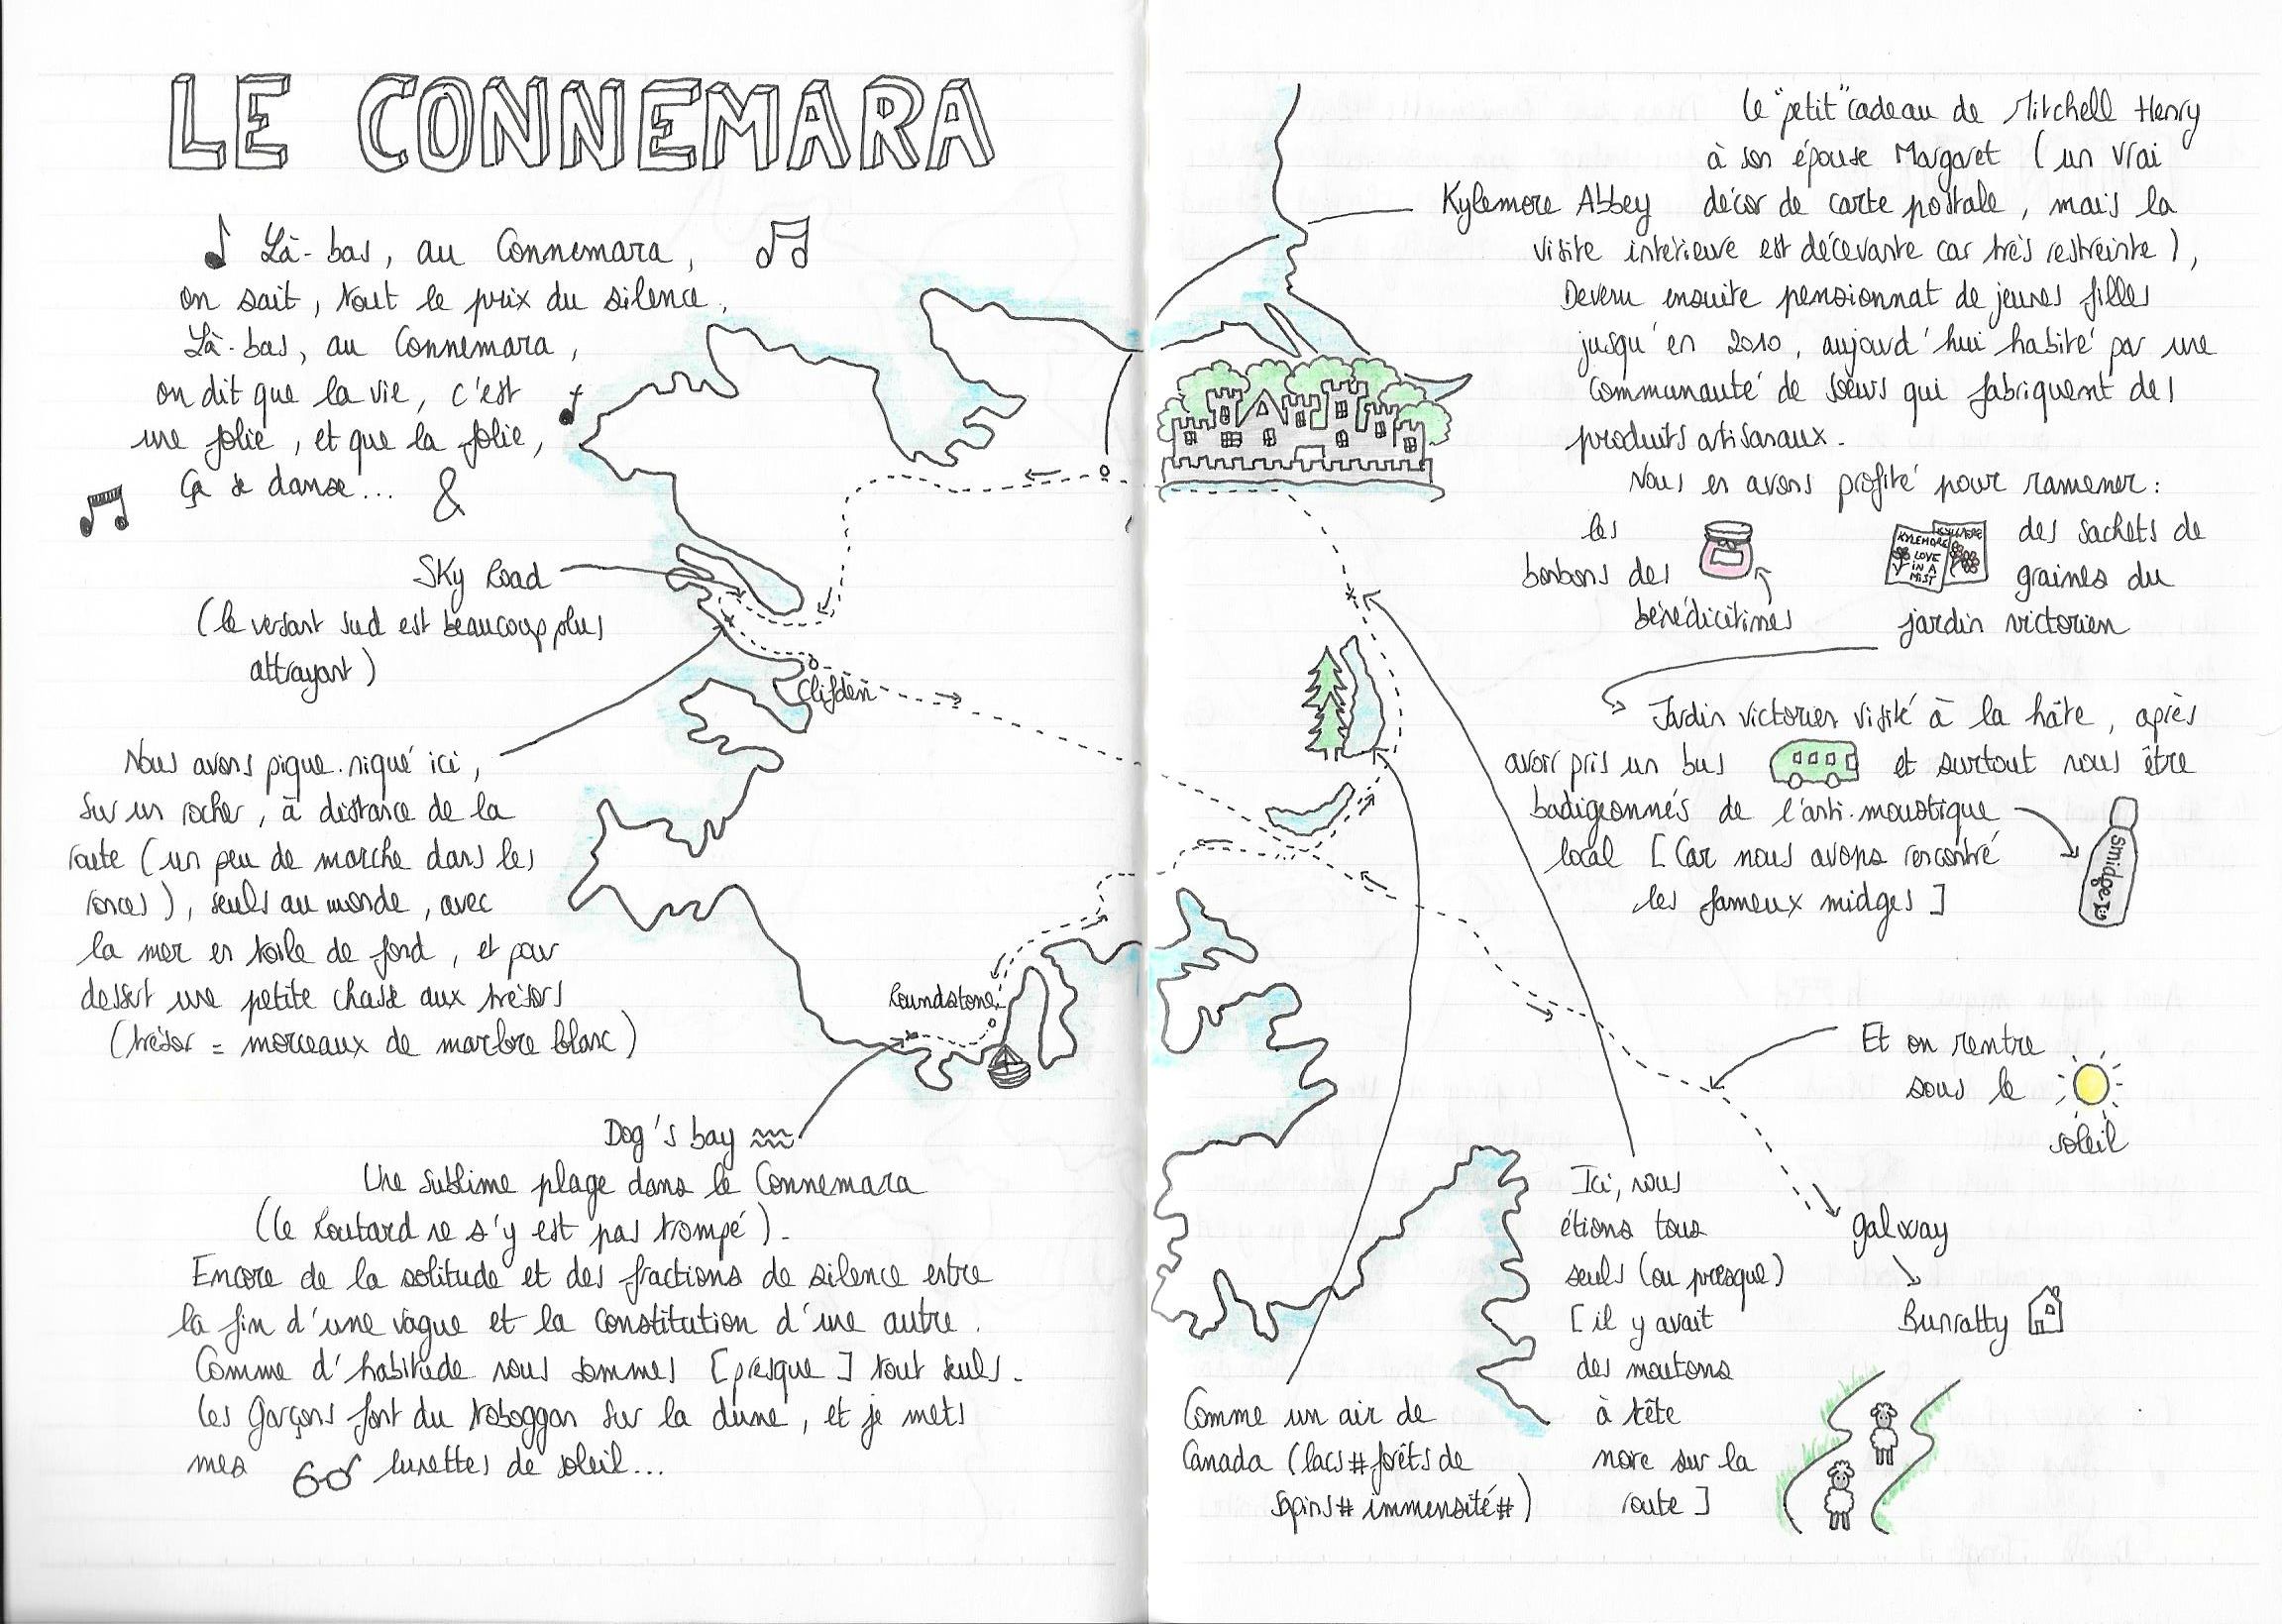 LE CONNEMARA
Là-bas, au Connemara,
on sait, tout le prix du silence,
Là-bas, au Connemara,
on dit que la vie, c'est
une folie, et que la folie,
Ça se danse...
&
Sky Road
(le versant sud est beaucoup plus
attrayant)
Clifden
Nous avons pique-niqué ici,
sur un rocher, à distance de la
route (un peu de marche dans les
ronces), seuls au monde, avec
la mer en toile de fond, et pour
dessert une petite chasse aux trésors
(trésor = morceaux de marbre blanc)
Roundstone
Dog's bay
Une sublime plage dans le Connemara
(le Routard ne s'y est pas trompé).
Encore de la solitude et des fractions de silence entre
la fin d'une vague et la constitution d'une autre.
Comme d'habitude nous sommes [presque] tout seuls.
Les garçons font du toboggan sur la dune, et je mets
mes lunettes de soleil...
Le "petit" cadeau de Mitchell Henry
à son épouse Margaret (un vrai
Kylemore Abbey décor de carte postale, mais la
visite intérieure est décevante car très restreinte),
Devenu ensuite pensionnat de jeunes filles
jusqu'en 2010, aujourd'hui habité par une
communauté de soeurs qui fabriquent des
produits artisanaux.
Nous en avons profité pour ramener :
les
bonbons des
bénédicitines
KYLEMORE
KYLEMORE
LOVE
IN A
MIST
des sachets de
graines du
jardin victorien
Jardin victorien visité à la hâte, après
avoir pris un bus et surtout nous être
badigeonnés de l'anti-moustique
local [Car nous avons rencontré
les fameux midges]
smidge
Et on rentre
sous le
soleil
Galway
Bunratty
Ici, nous
étions tous
seuls (ou presque)
[il y avait
des moutons
à tête
noire sur la
route]
Comme un air de
Canada (lacs # forêts de
sapins # immensité #)